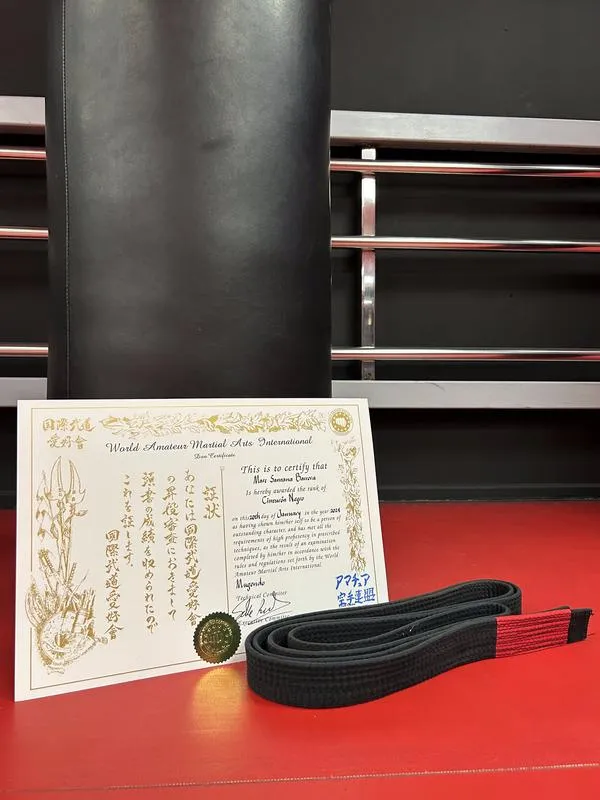 国際武道
愛好會
World Amateur Martial Arts International
Dan Certificate
This is to certify that
Marc Santana Barrera
Is hereby awarded the rank of
Cinturón Negro
on this 20th day of January in the year 2024
as having shown him/her self to be a person of
outstanding character, and has met all the
requirements of high proficiency in prescribed
techniques, as the result of an examination
completed by him/her in accordance with the
rules and regulations set forth by the World
Amateur Martial Arts International.
Mugendo
Technical Committee
Executive Committee
アマチュア
空手連盟
証状
あなたは国際武道愛好會
の昇段審査におきまして
頭書の成績を収められたので
これを証します。
国際武道愛好會